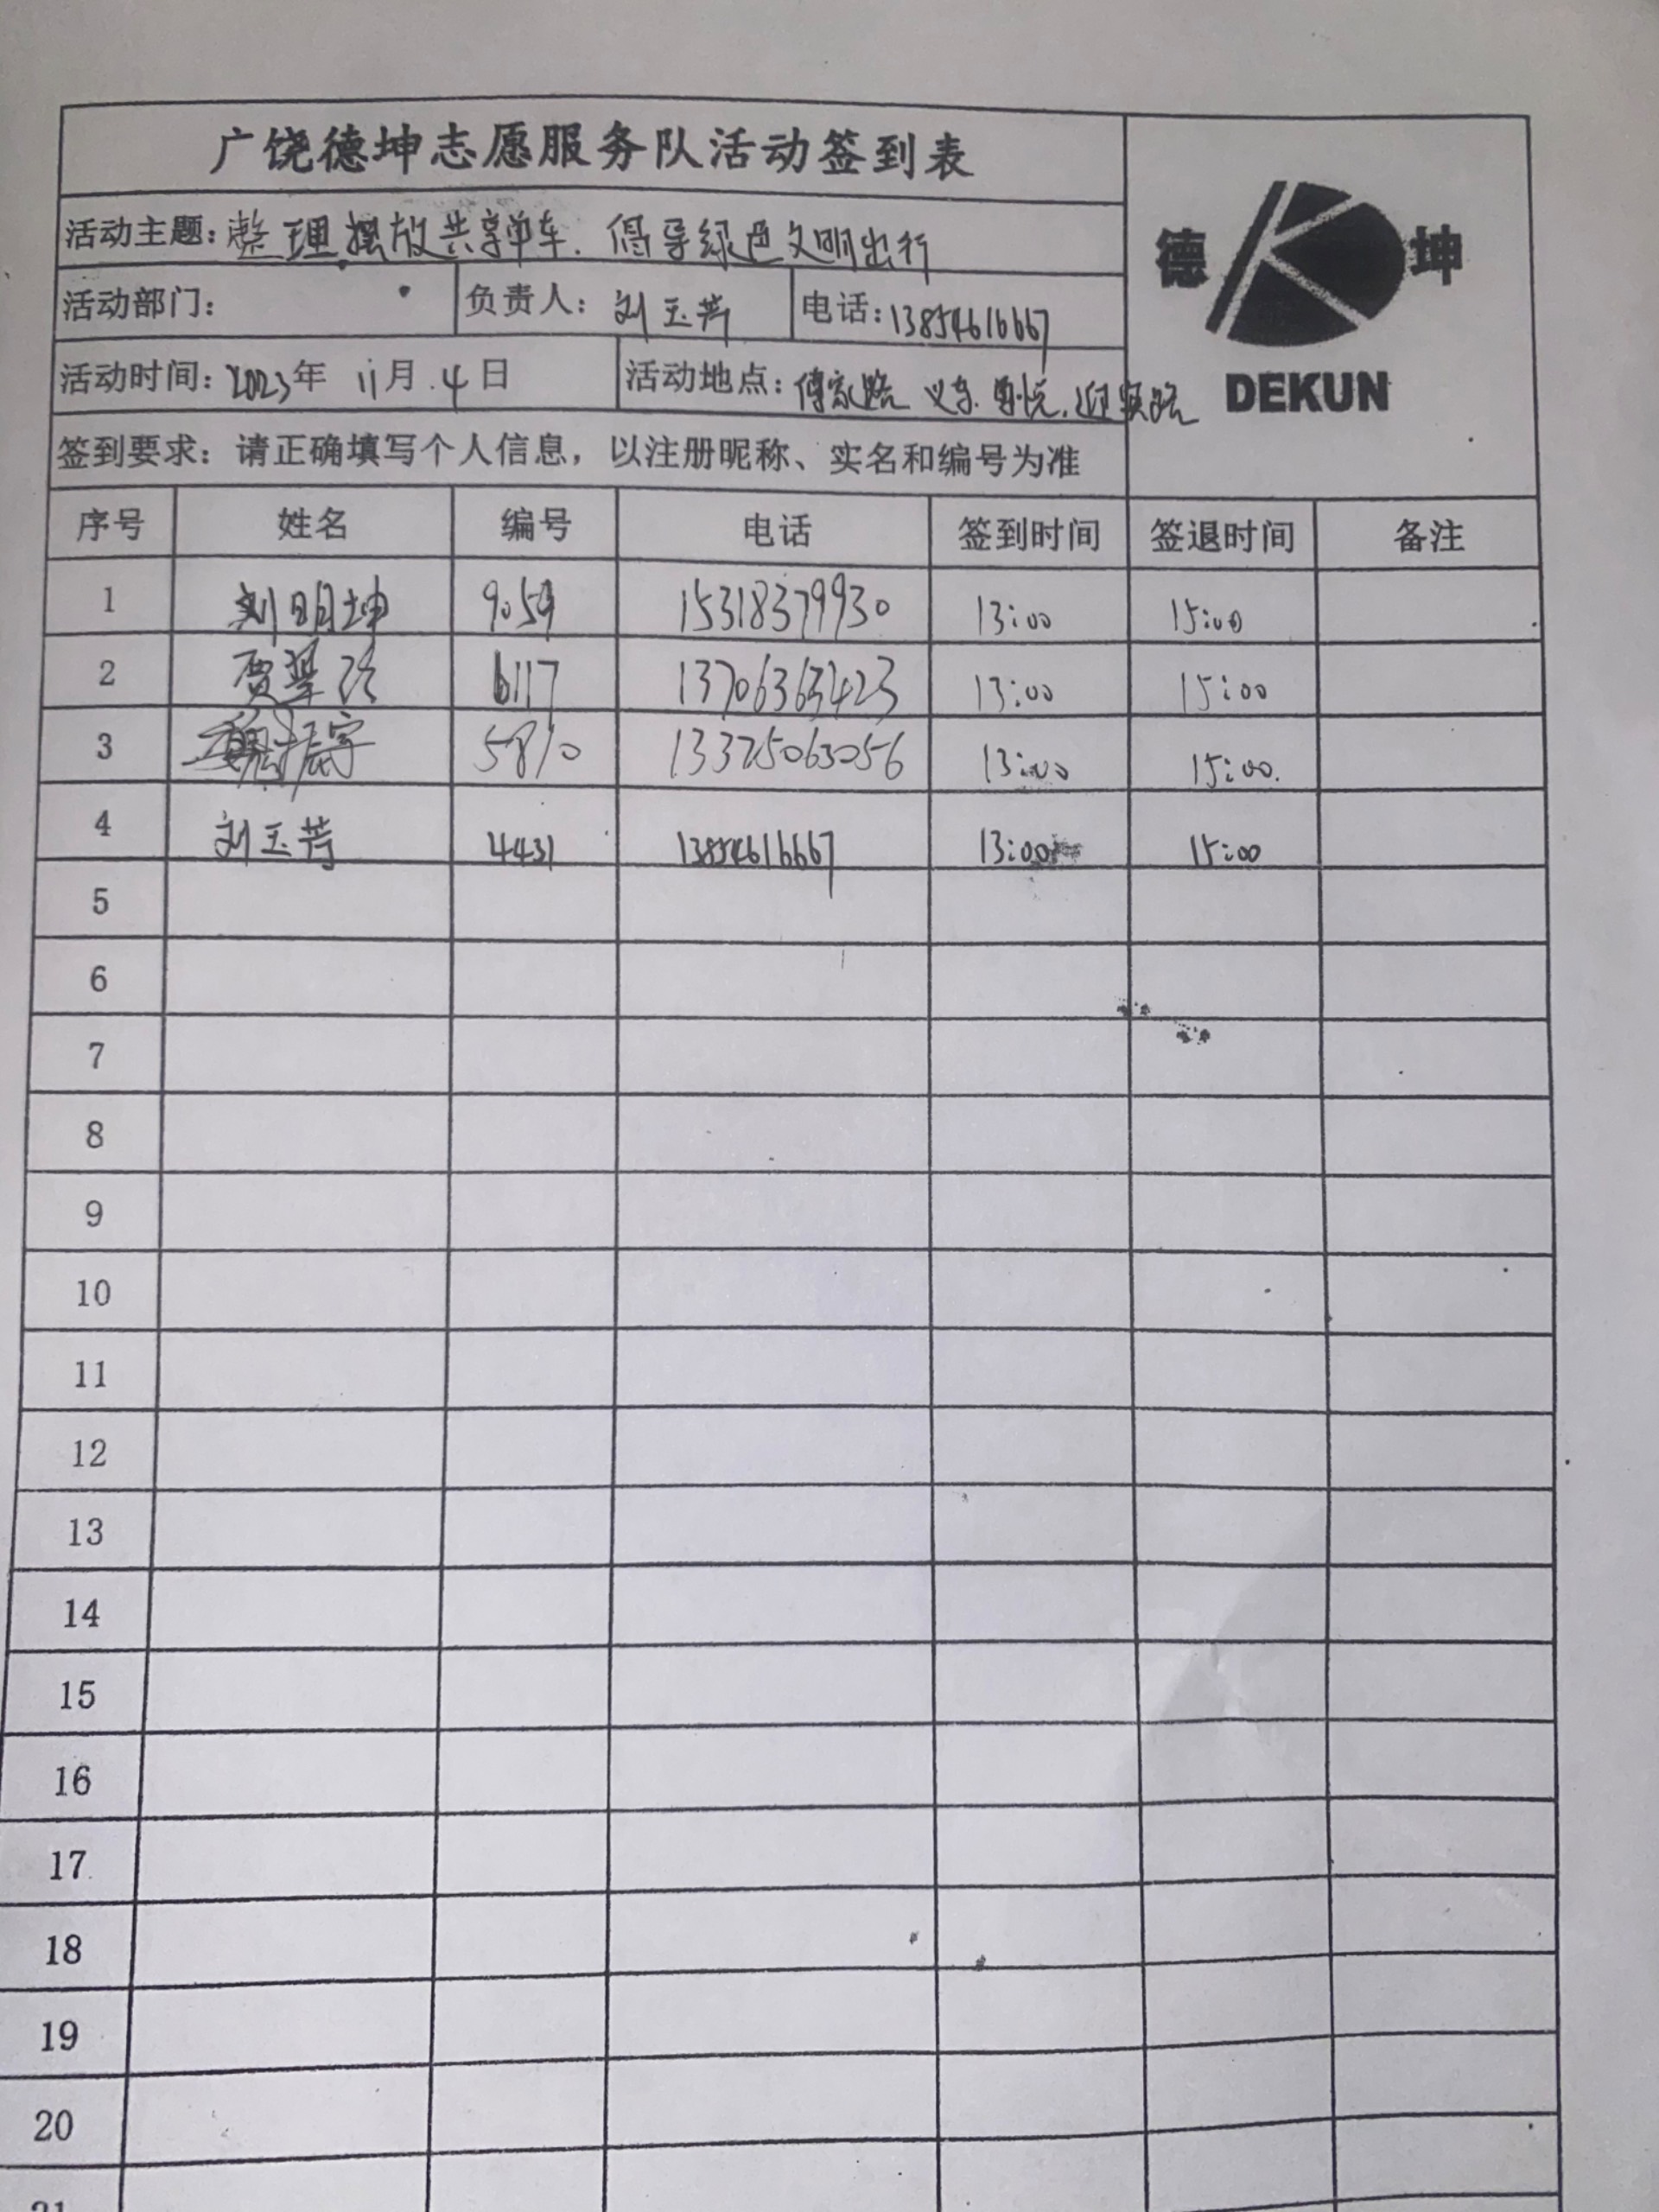 广饶德坤志愿服务队活动签到表
活动主题：整理摆放共享单车. 倡导绿色文明出行
德 坤
活动部门： 负责人：刘玉芳 电话：13854616667
活动时间：2023年 11月 4日 活动地点：傅家路 义乌 迎宾路
DEKUN
签到要求：请正确填写个人信息，以注册昵称、实名和编号为准
序号 姓名 编号 电话 签到时间 签退时间 备注
1 刘明坤 9059 15318379930 13:00 15:00
2 贾翠 6117 13706363423 13:00 15:00
3 魏振宇 5810 13325063056 13:00 15:00
4 刘玉芳 4431 13854616667 13:00 15:00
5
6
7
8
9
10
11
12
13
14
15
16
17
18
19
20
21